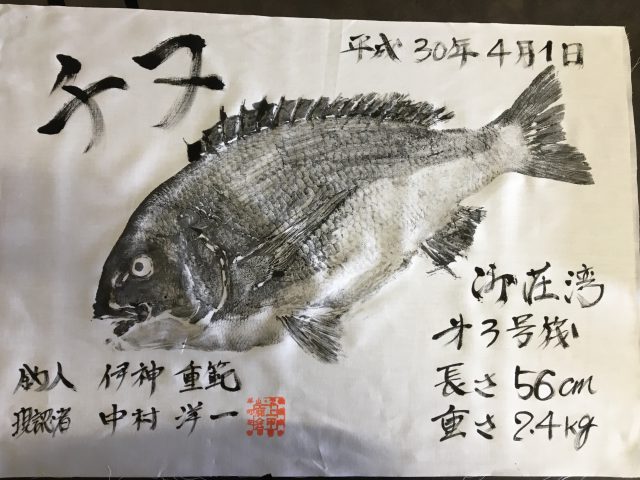 チヌ
平成30年4月1日
御荘湾
㐧3号筏
長さ 56cm
重さ 2.4kg
釣人 伊神 重範
現認者 中村 洋一